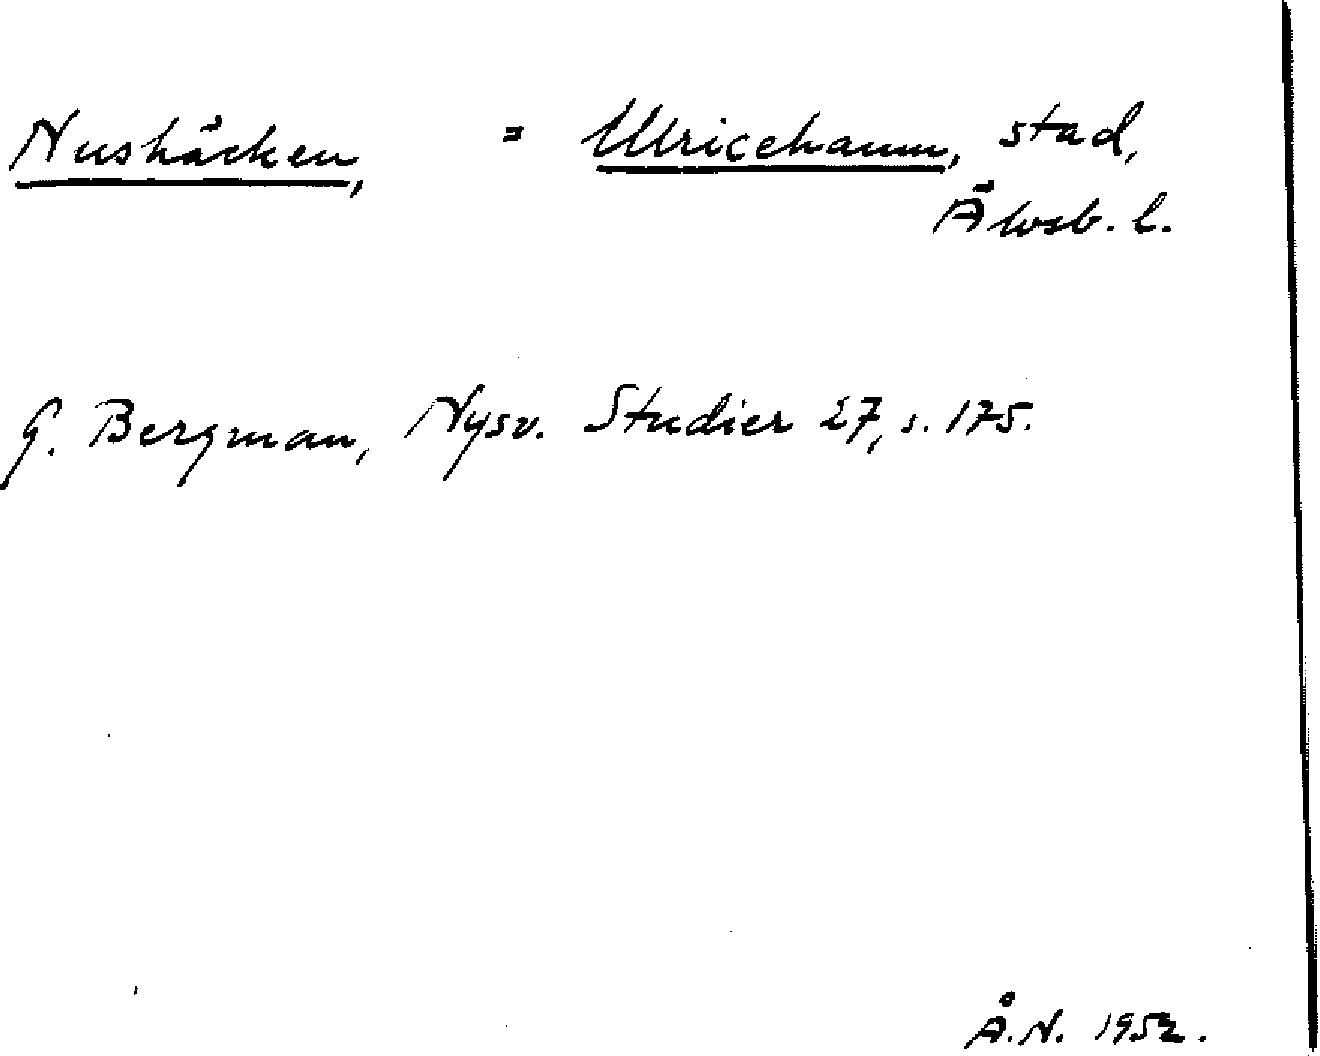 Nushäcken, = Ulricehamn, stad,
Älvsb. l.
G. Bergman, Nysv. Studier 27, s. 175.
Å. N. 1952.